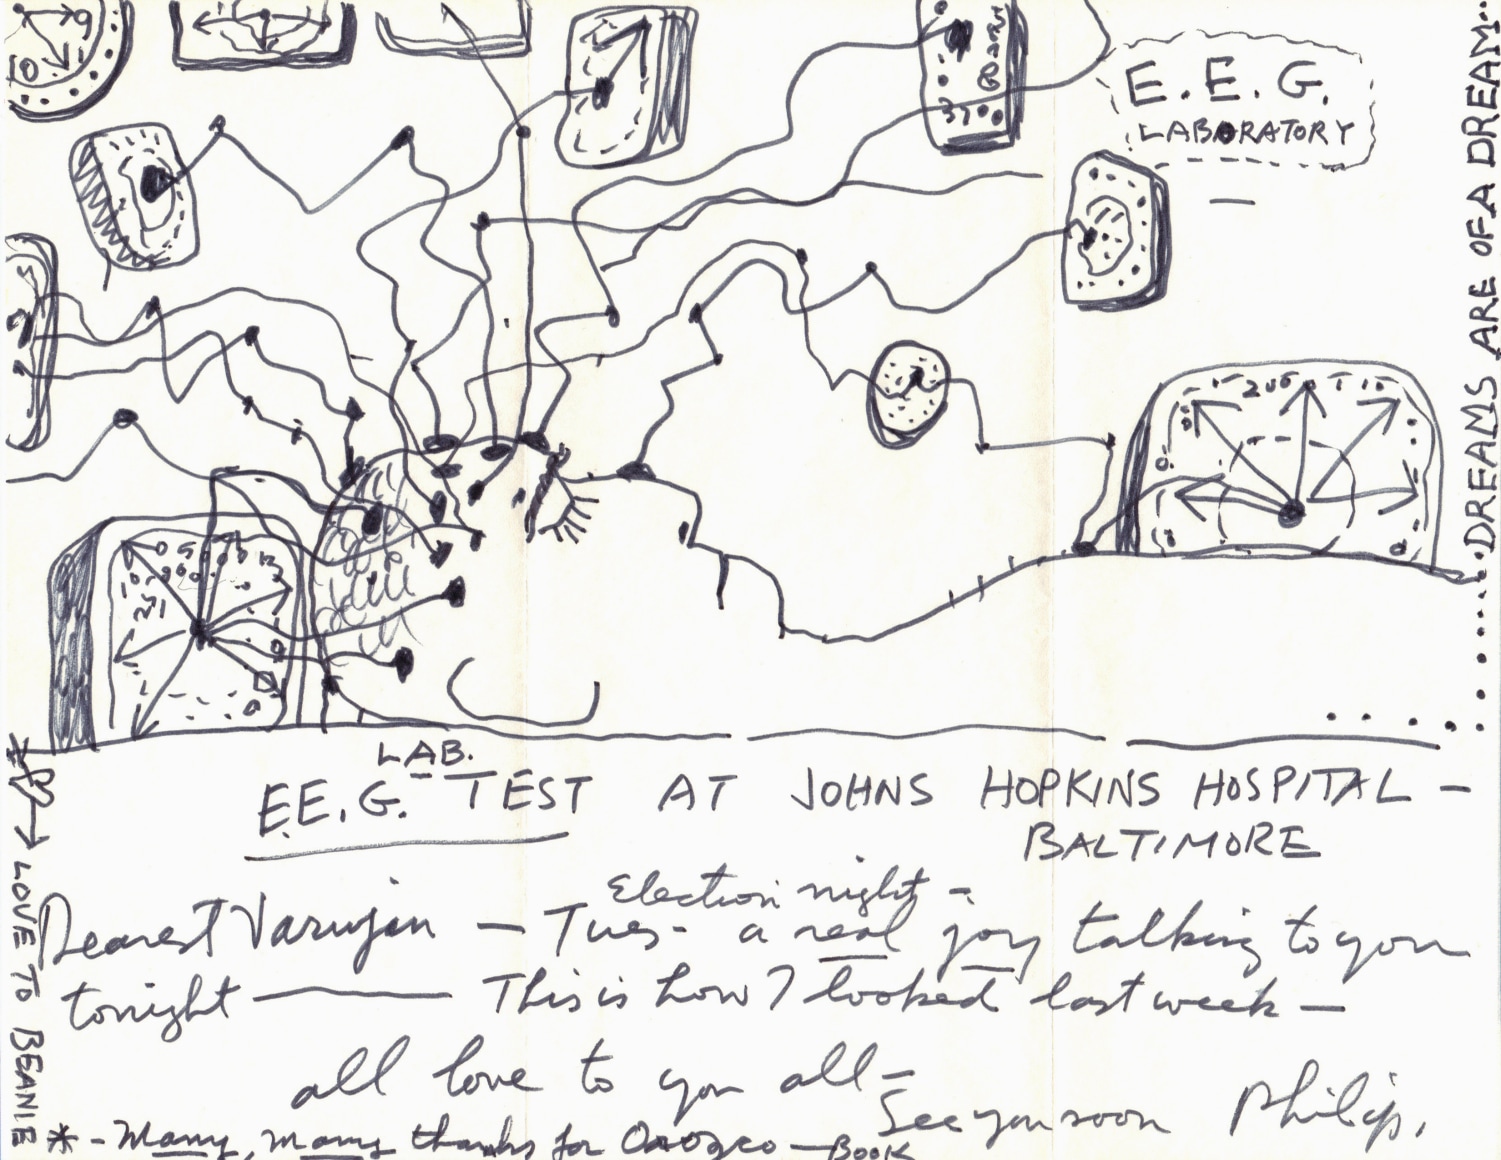 E.E.G.
LABORATORY
DREAMS ARE OF A DREAM
LAB.
E.E.G. TEST AT JOHNS HOPKINS HOSPITAL –
BALTIMORE
Election night –
Dearest Varujan – Tues- a real joy talking to you
tonight — This is how I looked last week –
all love to you all –
See you soon Philip.
* - Many, many thanks for Orozco – BOOK
LOVE TO BEANIE